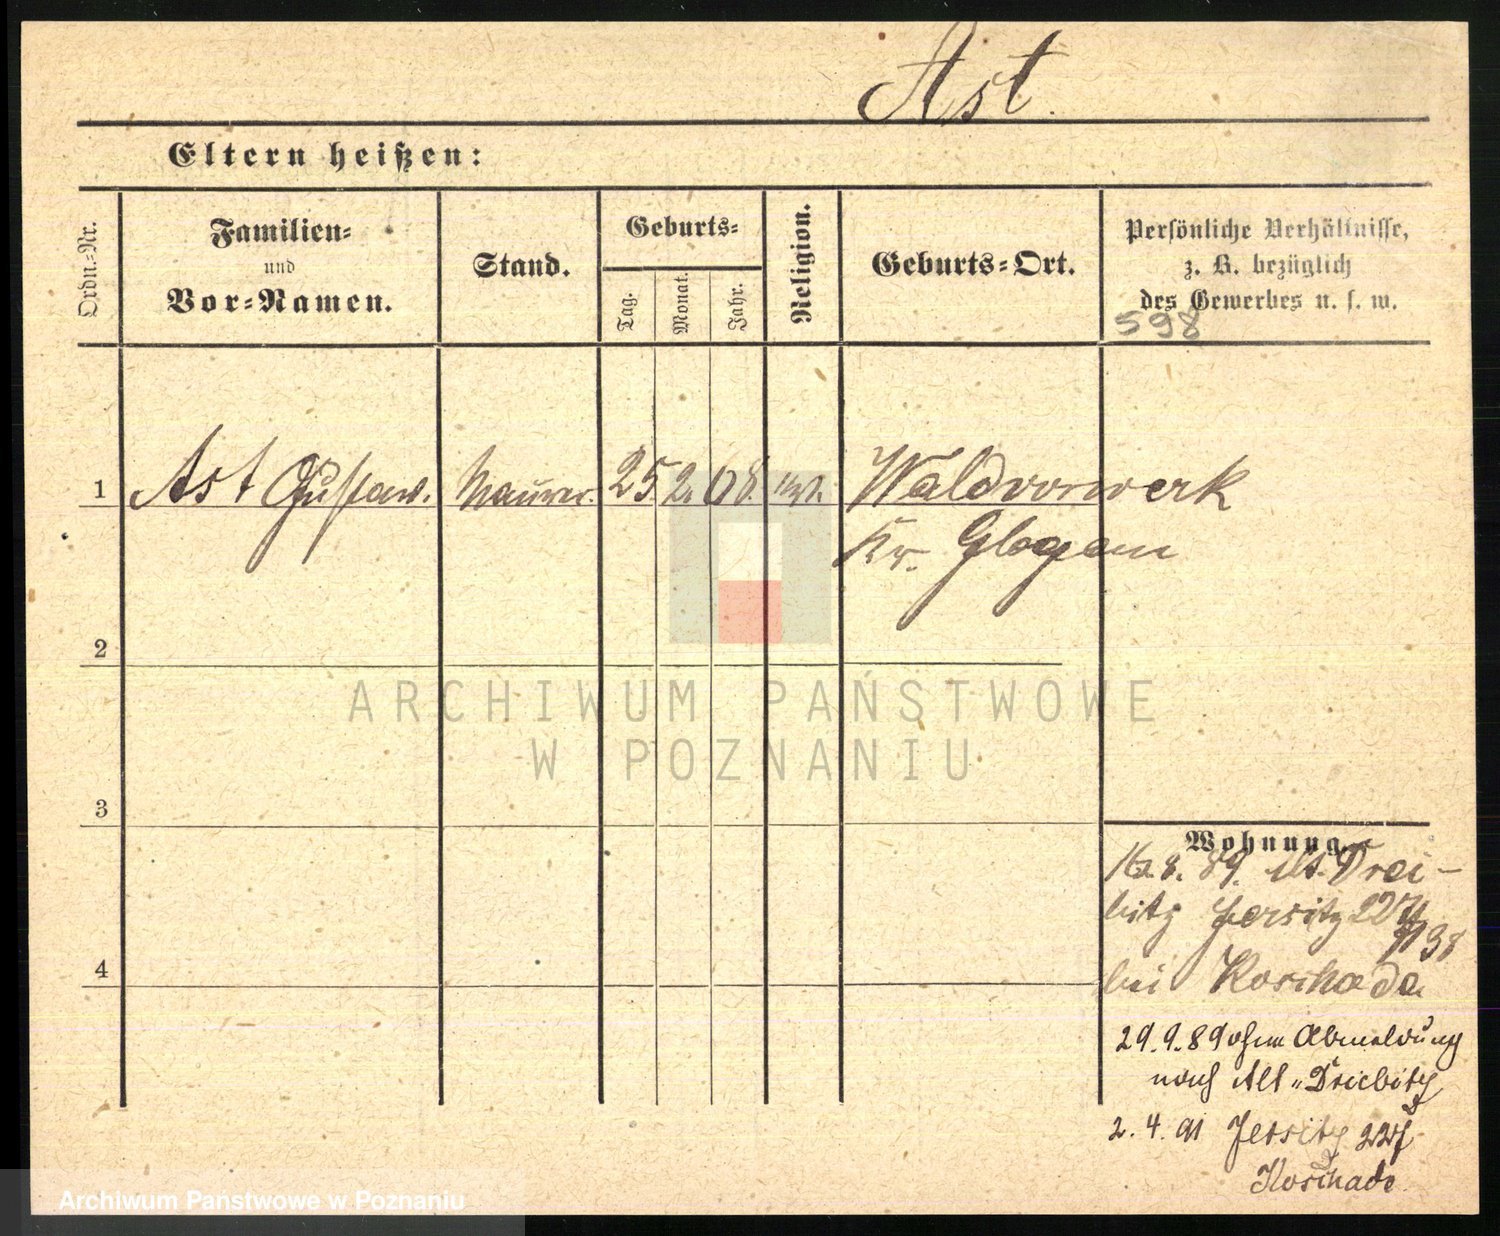 Ast.
Eltern heißen:
Ordn.-Nr.
Familien-
und
Vor-Namen.
Stand.
Geburts-
Tag.
Monat.
Jahr.
Religion.
Geburts-Ort.
Persönliche Verhältnisse,
z. B. bezüglich
des Gewerbes u. s. w.
598
1 Ast Gustav. Maurer. 25. 2. 68. Waldvorwerk
Kr. Glogau
2
3
4
Wohnung.
8. 89. Alt. Drei-
bitz Jersitz 227
38
bei Koschade
29.9.89 ohne Abmeldung
nach Alt-Driebitz
2. 4. 91 Jersitz 227
Koschade
ARCHIWUM PAŃSTWOWE
W POZNANIU
Archiwum Państwowe w Poznaniu